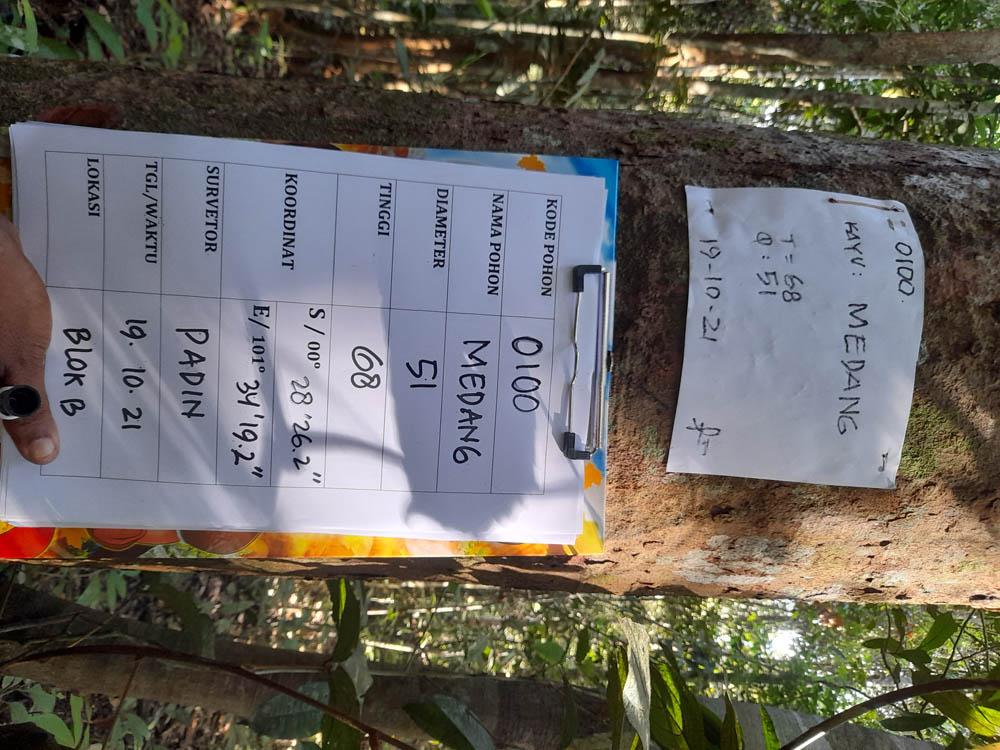 0100.
KAYU: MEDANG
T = 68
Φ : 51
19-10-21
KODE POHON 0100
NAMA POHON MEDANG
DIAMETER 51
TINGGI 68
KOORDINAT S / 00° 28'26.2"
E/ 101° 34'19.2"
SURVETOR PADIN
TGL/WAKTU 19. 10. 21
LOKASI BLOK B